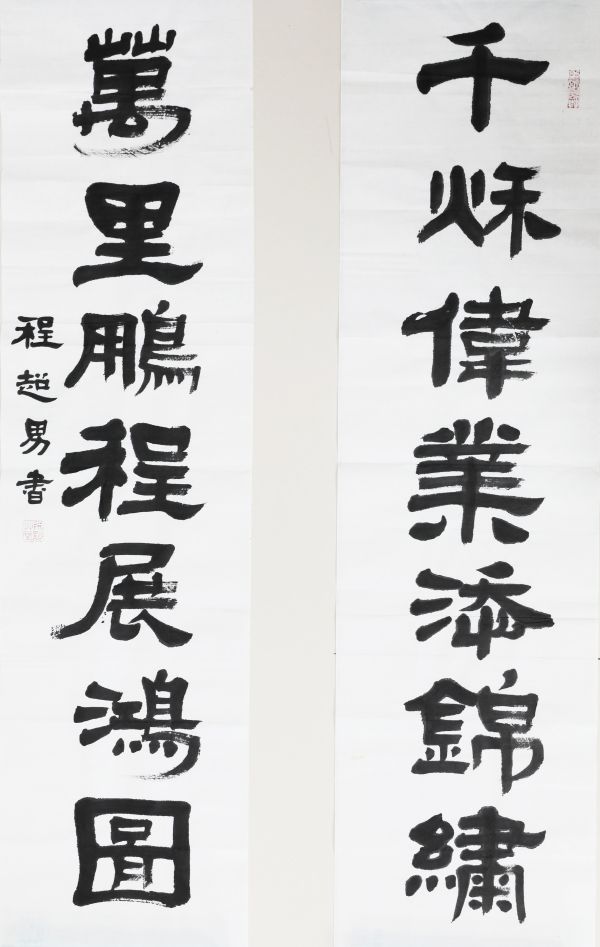 千秌偉業添錦繡
萬里鵬程展鴻圖
程超男書